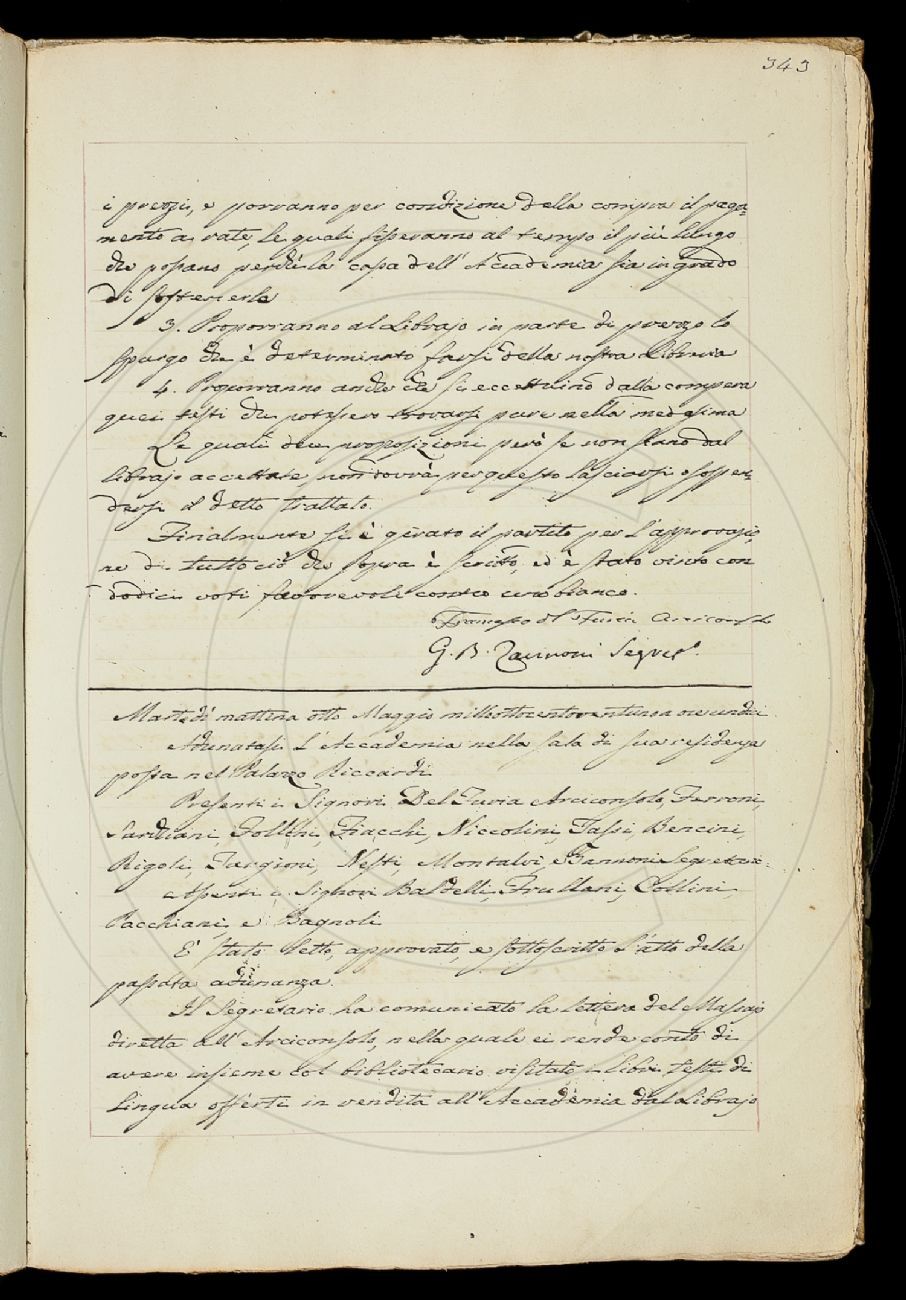 343
i prezzi, e porranno per condizione della compra il paga=
mento a rate, le quali fisseranno al tempo il più lungo
che possano perchè la cassa dell'Accademia sia in grado
di sostenerle
3. Proporranno al Librajo in parte di prezzo lo
spurgo che è determinato farsi della nostra Libreria
4. Proporranno anche che si eccettuino dalla compera
quei testi che potessero trovarsi pure nella medesima
Le quali due proposizioni però se non siano dal
librajo accettate, non dovrà per questo lasciarsi o sospen=
dersi il detto trattato.
Finalmente si è girato il partito per l'approvazio=
ne di tutto ciò che sopra è scritto, ed è stato vinto con
dodici voti favorevoli contro uno bianco.
Francesco del Furia Arciconsolo
G. B. Zannoni Segret.
Martedì mattina otto Maggio milleottocentoventuno a ore undici
Adunatasi l'Accademia nella sala di sua residenza
posta nel Palazzo Riccardi
Presenti i Signori Del Furia Arciconsolo, Ferroni,
Sarchiani, Follini, Fiacchi, Niccolini, Tassi, Bencini,
Rigoli, Targioni, Nesti, Montalvi e Zannoni Segretario.
Assenti i Signori Baldelli, Frullani, Collini,
Pacchiani, e Bagnoli
E' stato letto, approvato, e sottoscritto l'atto della
passata adunanza.
Il Segretario ha comunicato la lettera del Massajo
diretta all'Arciconsolo, nella quale ei rende conto di
avere insieme col bibliotecario visitato i libri testi di
Lingua offerti in vendita all'Accademia dal Librajo